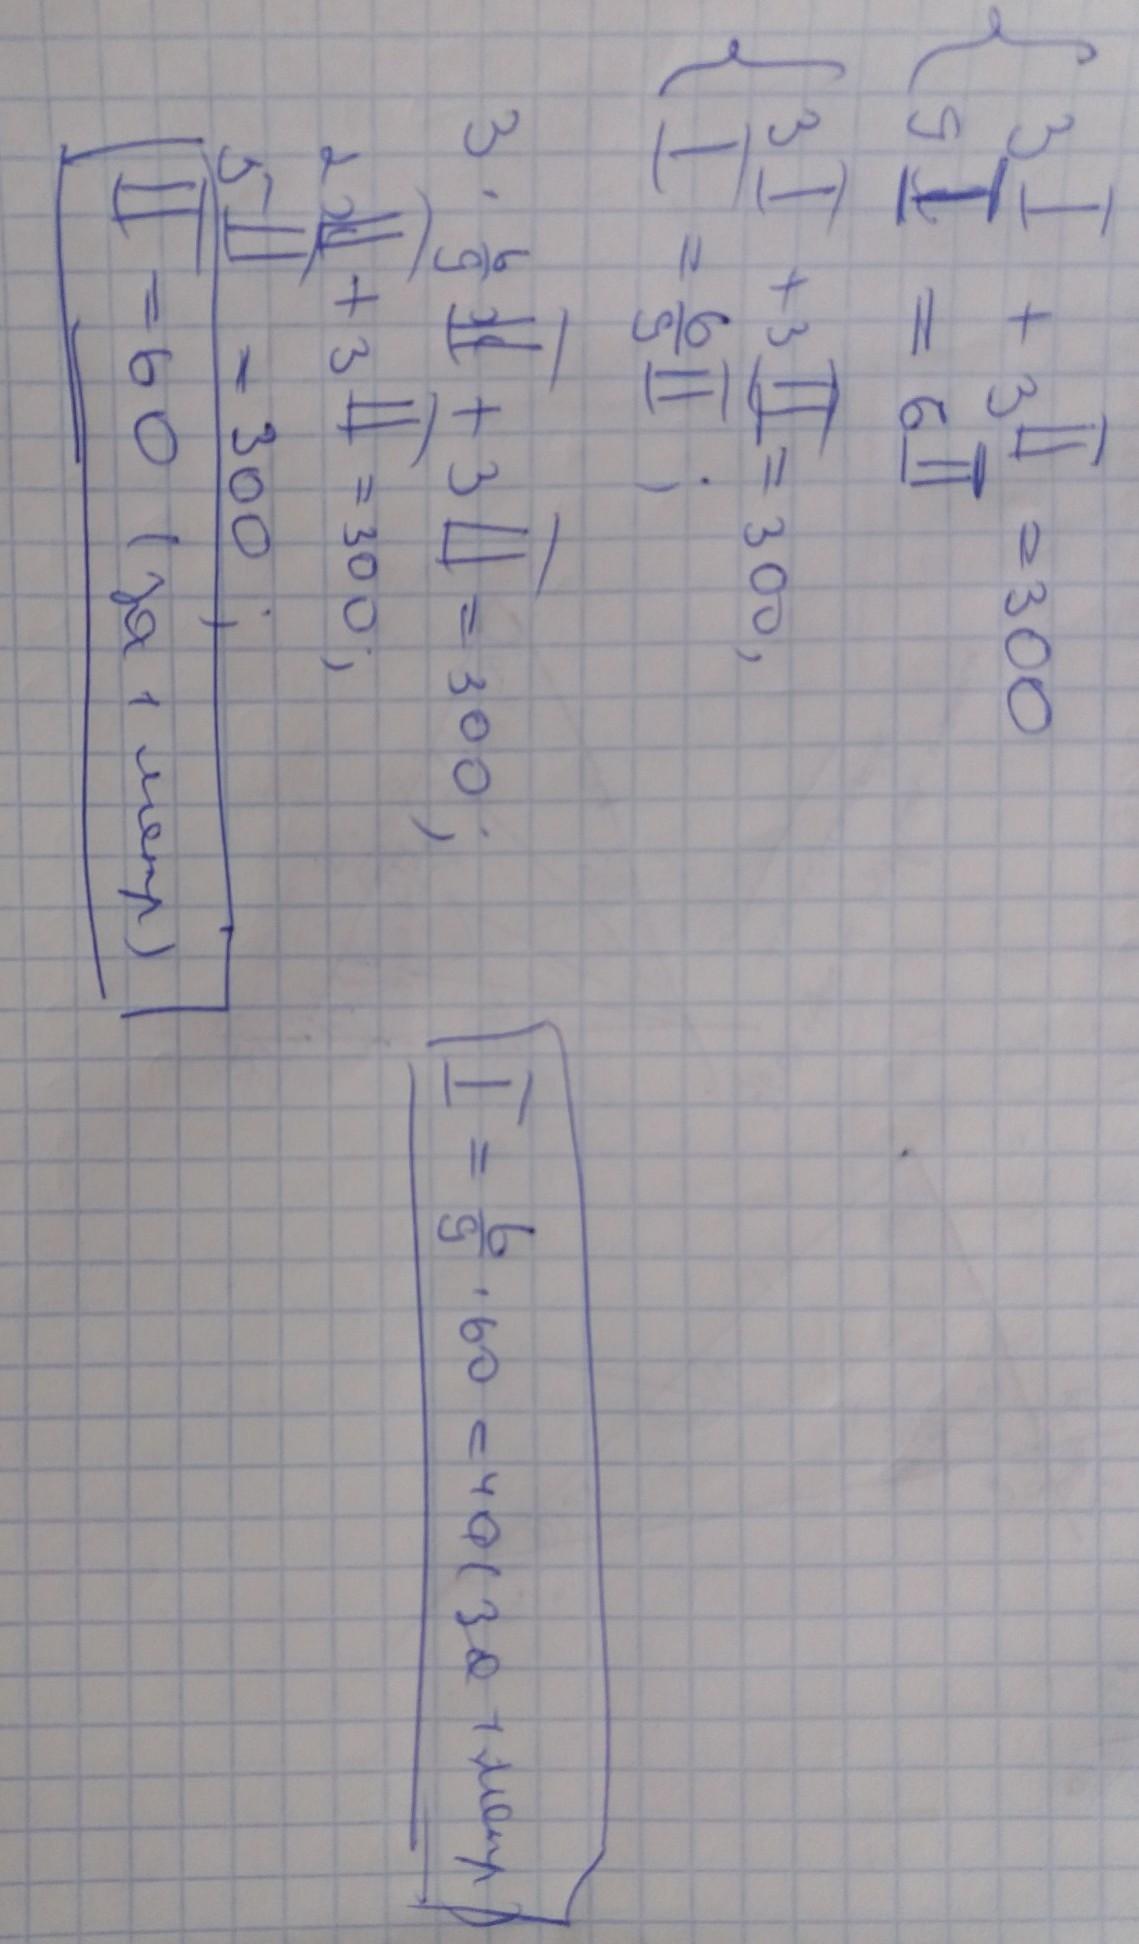 3 I + 3 II = 300
9 I = 6 II
3 I + 3 II = 300,
I = 6/9 II ;
3 · 6/9 II + 3 II = 300;
2 II + 3 II = 300;
5 II = 300;
II = 60 (за 1 метр)
I = 6/9 · 60 = 40 (за 1 метр)